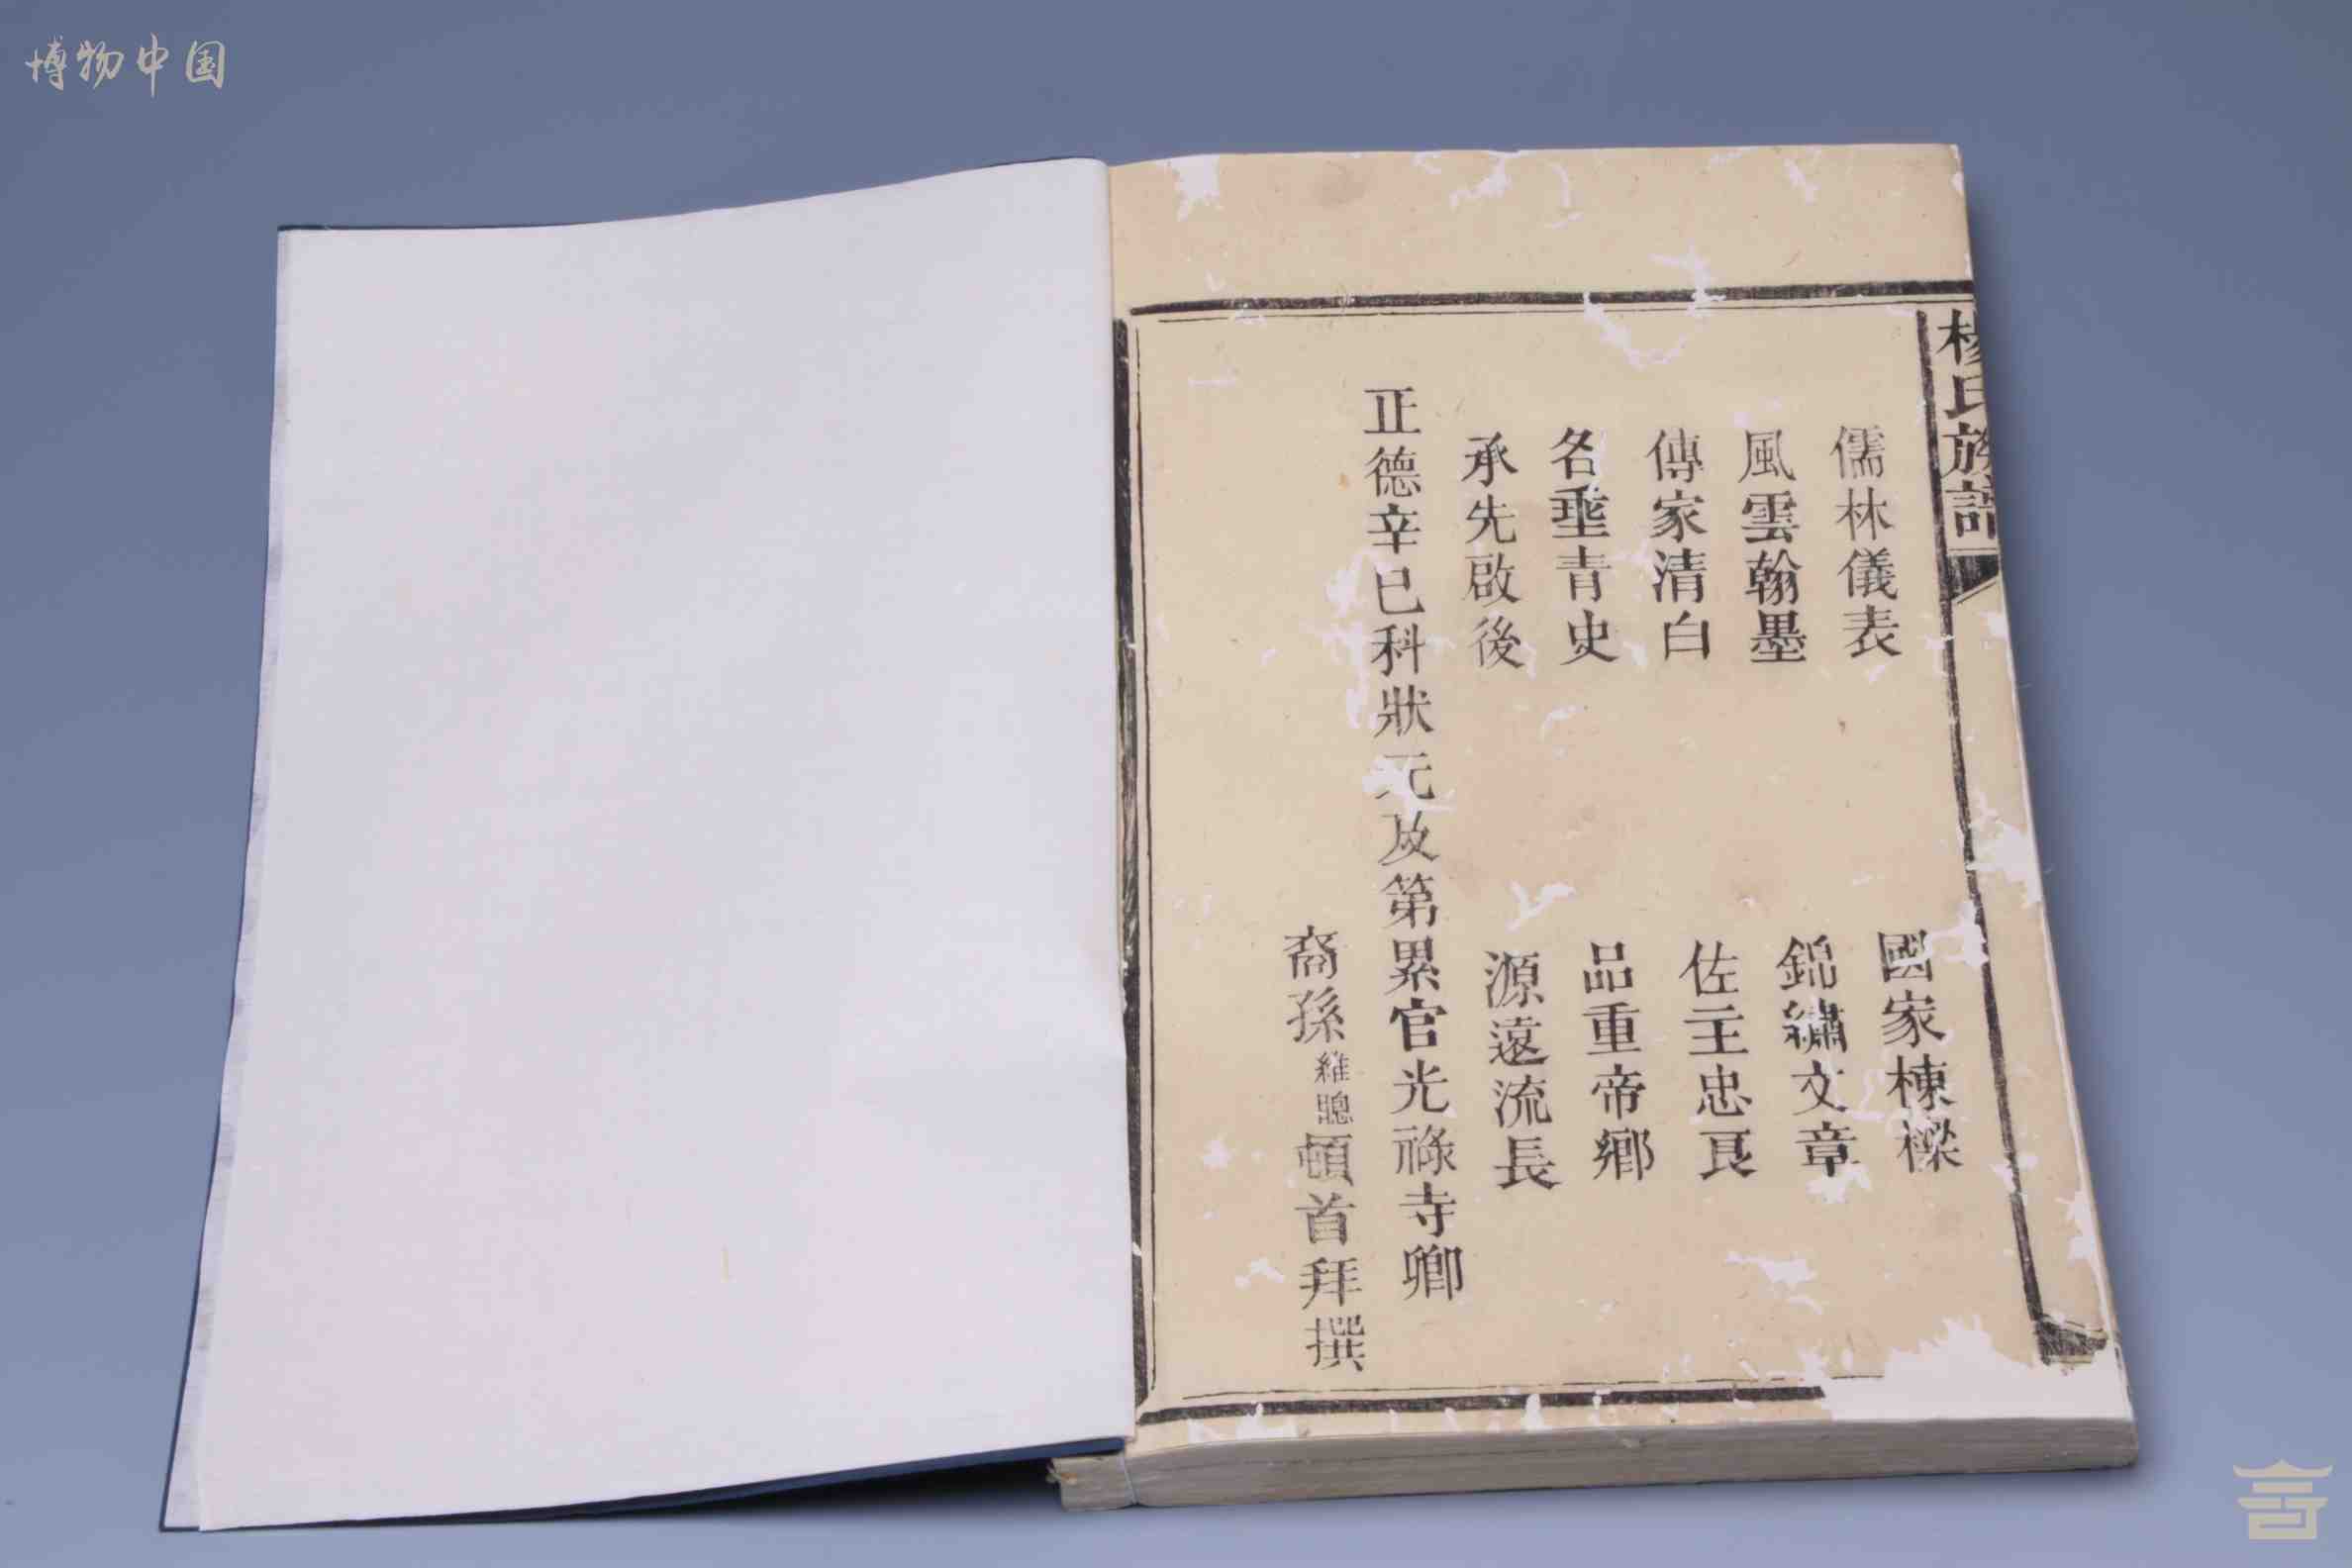 博物中国
楊氏族譜
儒林儀表 國家棟樑
風雲翰墨 錦繡文章
傳家清白 佐主忠良
名垂青史 品重帝鄉
承先啟後 源遠流長
正德辛巳科狀元及第累官光祿寺卿
裔孫維聰頓首拜撰